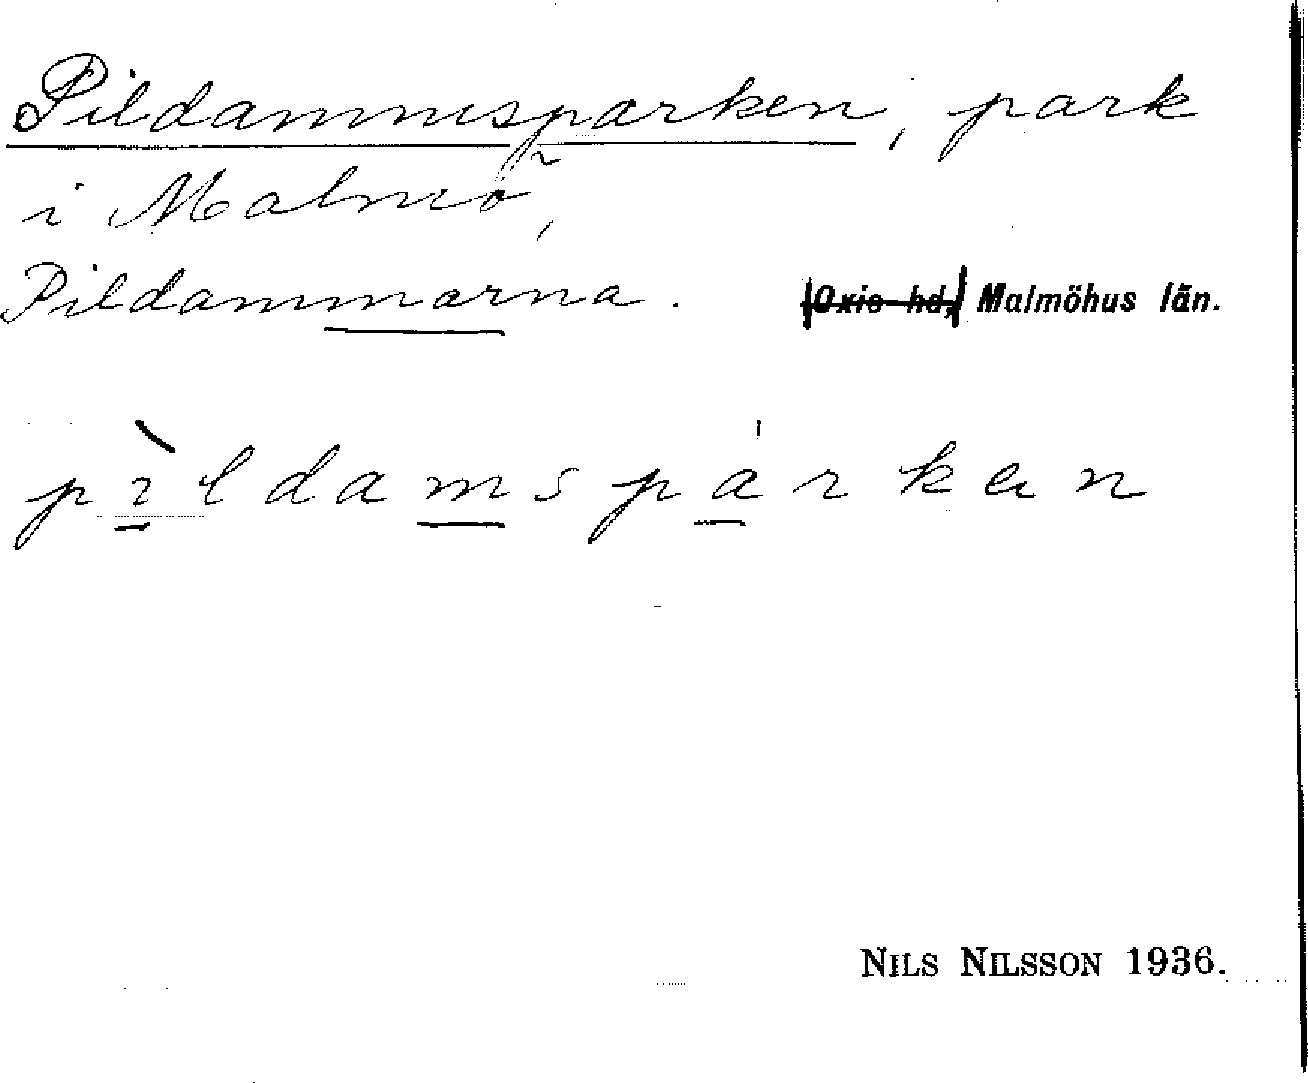 Pildammsparken, park
i Malmö,
Pildammarna.
[Oxie hd,] Malmöhus län.
pìldamspárken
NILS NILSSON 1936.